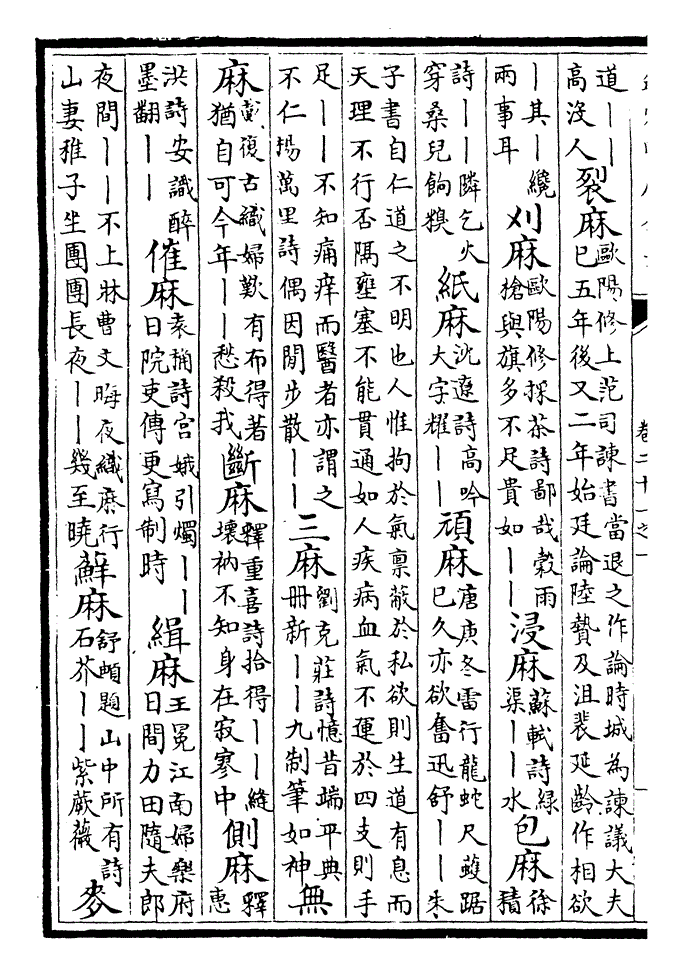 卷二十一之一
道——高沒人裂麻歐陽修上范司諫書當退之作論時城為諫議大夫已五年後又二年始廷論陸贄及沮裴延齡作相欲
—其—纔兩事耳刈麻歐陽修採茶詩鄙哉穀雨槍與旗多不足貴如——浸麻蘇軾詩綠渠——水包麻徐積
詩——隣乞火穿桑兒餉糗紙麻沈遼詩高吟大字耀——頑麻唐庚冬雷行龍蛇尺蠖踞已久亦欲奮迅舒——朱
子書自仁道之不明也人惟拘於氣禀蔽於私欲則生道有息而天理不行否隔壅塞不能貫通如人疾病血氣不運於四支則手
足——不知痛痒而醫者亦謂之不仁楊萬里詩偶因閒步散——三麻劉克莊詩憶昔端平典冊新——九制筆如神無
麻戴復古織婦歎有布得著猶自可今年——愁殺我斷麻釋重喜詩拾得——縫壞衲不知身在寂寥中側麻釋惠
洪詩安識醉墨翻——催麻袁桷詩宮娥引燭——日院吏傳更寫制時緝麻王冕江南婦樂府日間力田隨夫郎
夜間——不上牀曹文晦夜織麻行山妻稚子坐團團長夜——幾至曉蘚麻舒頔題山中所有詩石芥——紫蕨薇麥